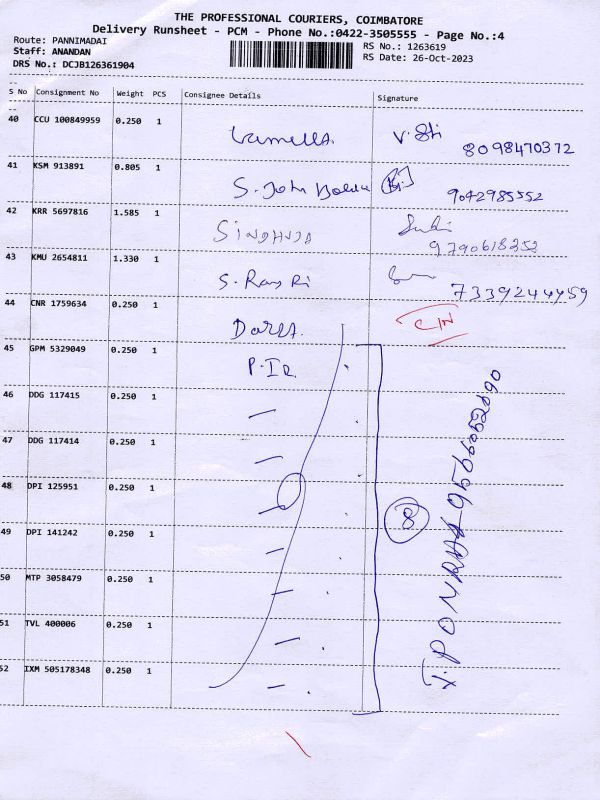 THE PROFESSIONAL COURIERS, COIMBATORE
Delivery Runsheet - PCM - Phone No.:0422-3505555 - Page No.:4
Route: PANNIMADAI
RS No.: 1263619
Staff: ANANDAN
RS Date: 26-Oct-2023
DRS No.: DCJB126361904
S No Consignment No Weight PCS Consignee Details Signature
40 CCU 100849959 0.250 1 V. Sti 8098470372
41 KSM 913891 0.805 1 S. John 9042985552
42 KRR 5697816 1.585 1 9790618252
43 KMU 2654811 1.330 1 7339244459
44 CNR 1759634 0.250 1
45 GPM 5329049 0.250 1
46 DDG 117415 0.250 1 —
47 DDG 117414 0.250 1 —
48 DPI 125951 0.250 1 —
49 DPI 141242 0.250 1 —
50 MTP 3058479 0.250 1 —
51 TVL 400006 0.250 1 —
52 IXM 505178348 0.250 1 —
8